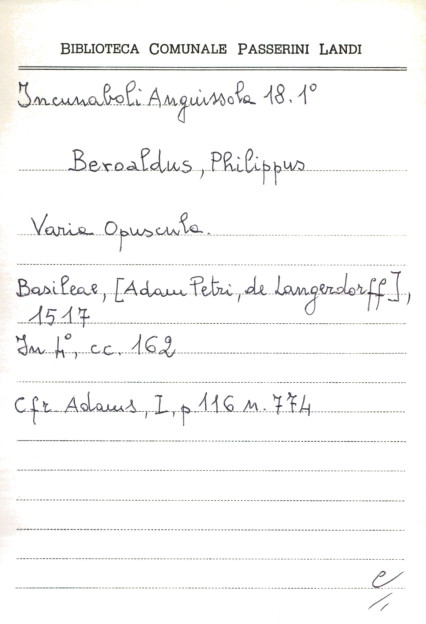 BIBLIOTECA COMUNALE PASSERINI LANDI
Incunaboli Anguissola 18.1°
Beroaldus, Philippus
Varia Opuscula.
Basileae, [Adam Petri, de Langerdorff],
1517
In 4°, cc. 162
Cfr Adams, I, p 116 n. 774